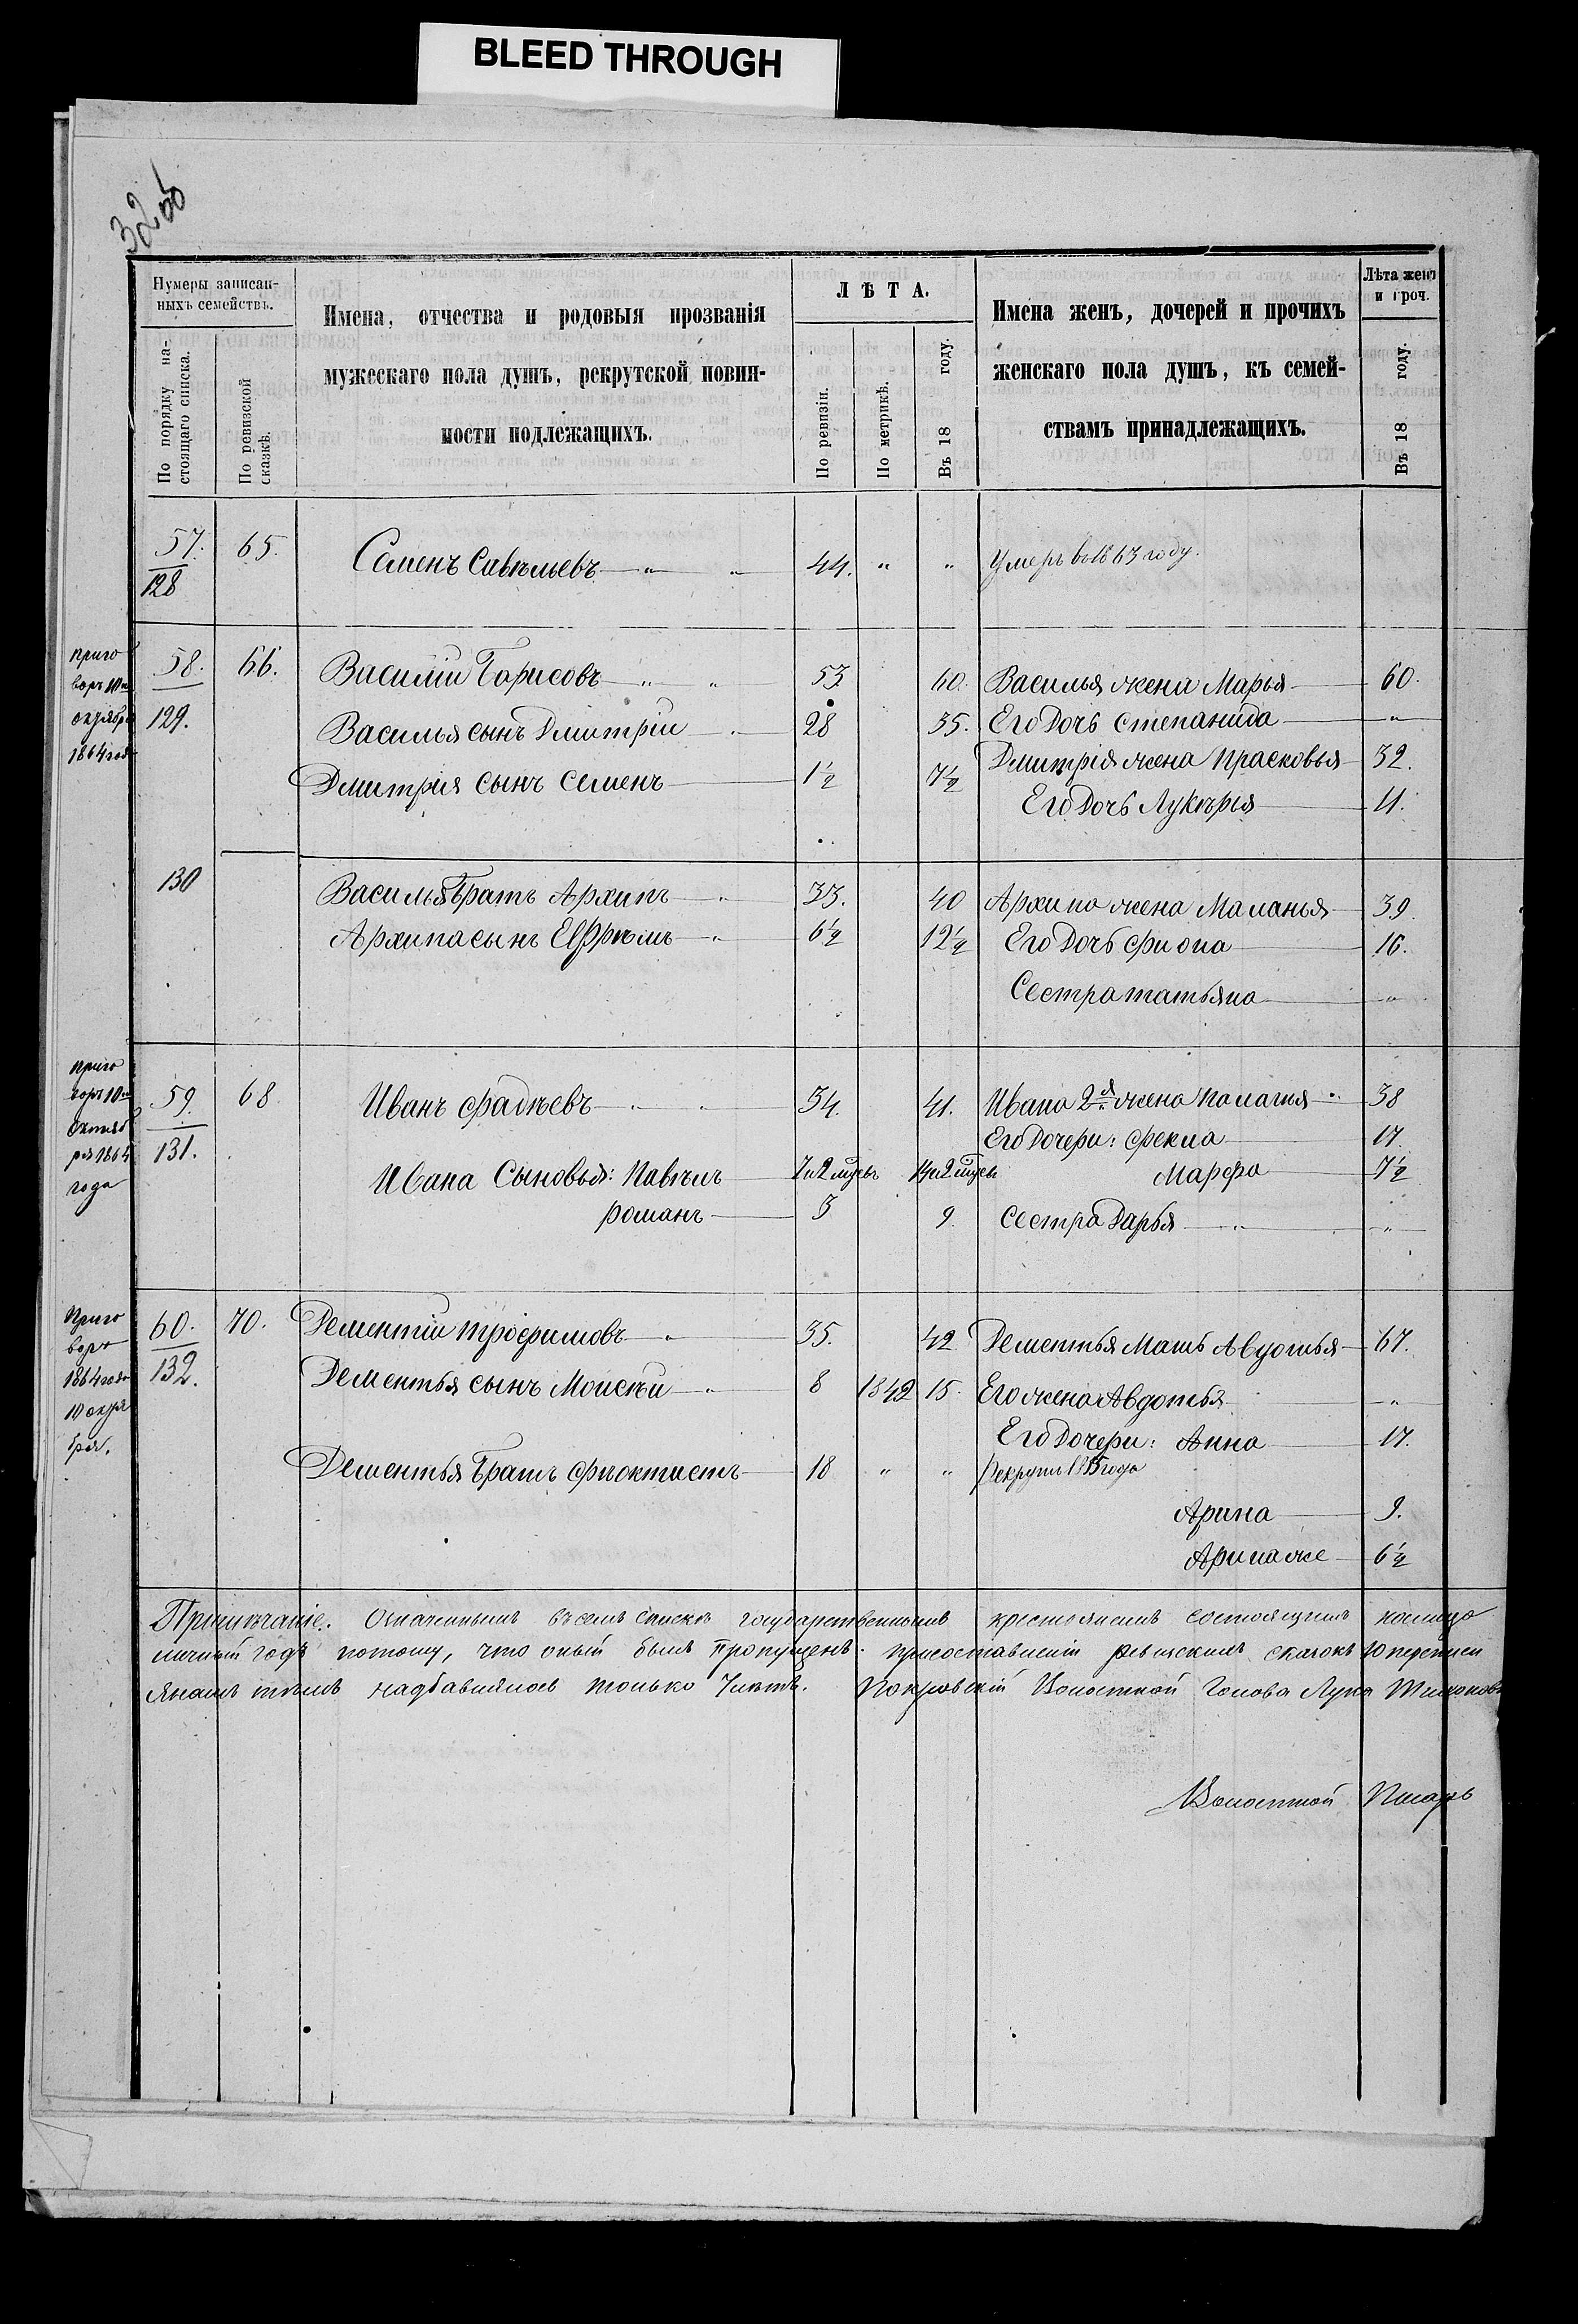 BLEED THROUGH
Нумеры записан-
ныхъ семействъ.
По порядку на-
стоящаго списка.
По ревизской
сказкѣ.
Имена, отчества и родовыя прозванія
мужескаго пола душъ, рекрутской повин-
ности подлежащихъ.
ЛѢТА.
По ревизіи.
По метрикѣ.
Въ 18 году.
Имена женъ, дочерей и прочихъ
женскаго пола душъ, къ семей-
ствамъ принадлежащихъ.
Лѣта женъ
и проч.
Въ 18 году.
57. 65. Семенъ Савѣльевъ — „ „ 44. „ „ Умеръ въ 1863 году.
128
приго
воръ 10го
октября
1864 года
58. 66. Василій Борисовъ — „ „ 53 60. Василья жена Марья — 60.
129. Василья сынъ Дмитріи — „ 28 35. Его дочь Степанида — „
Дмитрія сынъ Семенъ — 1½ 7½ Дмитрія жена Прасковья — 32.
Его дочь Лукѣрья — 11.
130 Василья братъ Архипъ — „ 33. 40 Архипа жена Маланья — 39.
Архипа сынъ Ефрѣмъ — „ 6½ 12½ Его дочь Фиона — 16.
Сестра татьяна — „
приго
воръ 10го
октяб
ря 1864
года
59. 68 Иванъ Фадѣевъ — „ „ 34. 41. Ивана 2я жена Палагия — „ 38
131. Его дочери: Фекла — 17.
Ивана Сыновья: Павѣлъ — Марфа — 7½
романъ — 3 9. Сестра Дарья — „ „
Приго
воръ
1864 года
10 октя
бря.
60. 70. Дементіи трофимовъ — „ 35. 42 Дементья Мать Авдотья — 67.
132. Дементья сынъ Моисѣи — „ 8 1842 15. Его жена Авдотья — „
Его дочери: Анна — 17.
Дементья братъ Фѣоктистъ — 18 „ „ рекрутъ 1855 года
Арина — 9.
Арина же — 6½
Примѣчаніе. Означеннымъ въ семъ спискѣ государственнымъ крестьянамъ состоящимъ
годъ потому, что оный былъ пропущенъ ревизскихъ сказокъ 10 переписи
надбавлялось только 7 лѣтъ. Покровскій Волостной Голова Лука
Волостной Писарь